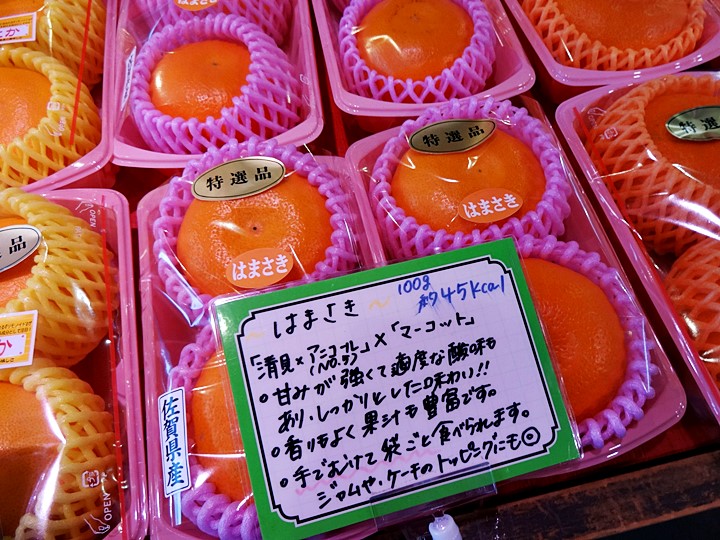 か
特選品
特選品
特選品
品
はまさき
はまさき
か
OPEN
OPEN
佐賀県産
はまさき
100g
約45kcal
「清見×アンコール」×「マーコット」
(No.5)
•甘みが強くて適度な酸味も
あり、しっかりとした味わい!!
•香りもよく果汁も豊富です。
•手でむけて袋ごと食べられます。
ジャムや、ケーキのトッピングにも◎